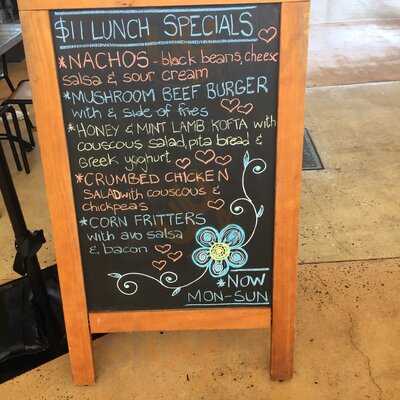 $11 LUNCH SPECIALS
*NACHOS - black beans, cheese
salsa & sour cream
*MUSHROOM BEEF BURGER
with & side of fries
*HONEY & MINT LAMB KOFTA with
couscous salad, pita bread &
Greek yoghurt
*CRUMBED CHICKEN
SALAD with couscous &
chickpeas
*CORN FRITTERS
with avo salsa
& bacon
*NOW
MON-SUN